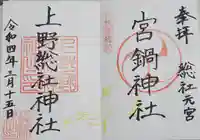 奉拝
総社元宮
宮鍋神社
上野総社神社
令和四年三月十五日